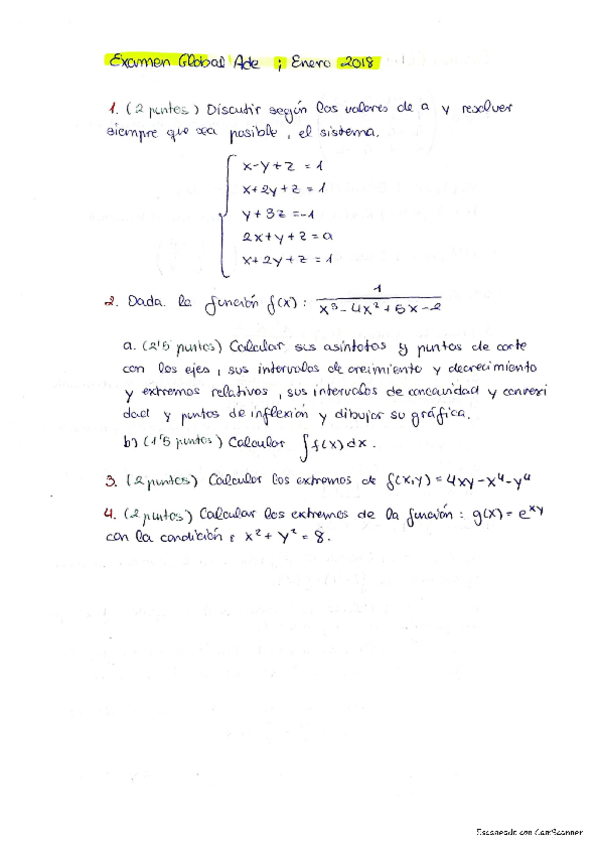 Examen Global Ade ; Enero 2018
1. (2 puntos) Discutir según los valores de a y resolver
siempre que sea posible, el sistema.
x-y+z=1
x+2y+z=1
y+3z=-1
2x+y+z=a
x+2y+z=1
2. Dada la función f(x): 1/(x³-4x²+5x-2)
a. (2'5 puntos) Calcular sus asíntotas y puntos de corte
con los ejes, sus intervalos de crecimiento y decrecimiento
y extremos relativos, sus intervalos de concavidad y convexi
dad y puntos de inflexión y dibujar su gráfica.
b) (1'5 puntos) Calcular ∫f(x)dx.
3. (2 puntos) Calcular los extremos de f(x,y)=4xy-x⁴-y⁴
4. (2 puntos) Calcular los extremos de la función: g(x)=e^xy
con la condición: x²+y²=8.
Escaneado con CamScanner